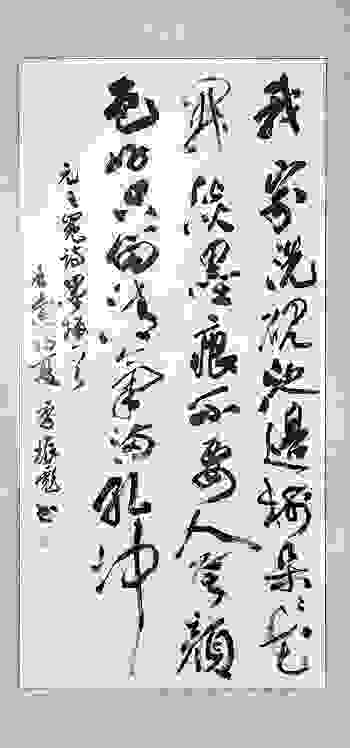 我家洗硯池邊樹朵〻花
開淡墨痕不要人夸顏
色好只留清氣滿乾坤
元王冕詩墨梅
夏 書